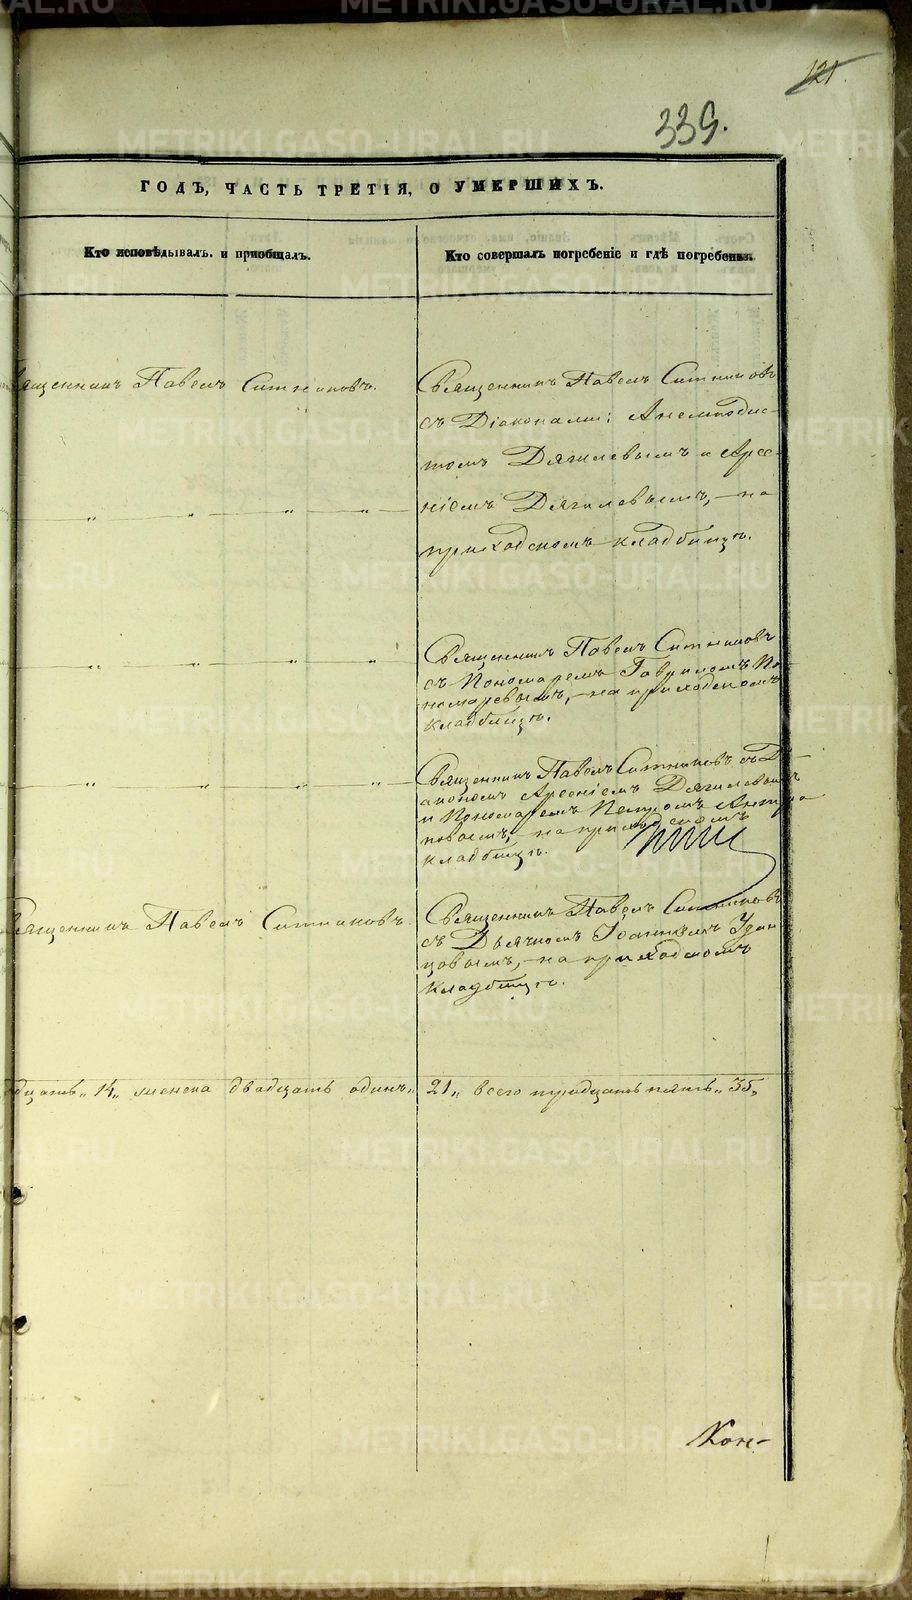 121.
339.
ГОДЪ, ЧАСТЬ ТРЕТІЯ, О УМЕРШИХЪ.
Кто исповѣдывалъ и пріобщалъ.
Кто совершалъ погребеніе и гдѣ погребены.
Священникъ Павелъ Ситниковъ.
Священникъ Павелъ Ситниковъ
съ Діаконами: Анемподис-
томъ Дягилевымъ и Арсе-
ніемъ Дягилевымъ, на
приходскомъ кладбищѣ.
— „ — „ — „ — „ —
— „ — „ — „ — „ —
Священникъ Павелъ Ситниковъ
съ Пономаремъ Гавриломъ По-
номаревымъ, на приходскомъ
кладбищѣ.
— „ — „ — „ — „ —
Священникъ Павелъ Ситниковъ съ Ді-
акономъ Арсеніемъ Дягилевымъ
и Пономаремъ Петромъ Антипо-
повымъ, на приходскомъ
кладбищѣ.
Священникъ Павелъ Ситниковъ.
Священникъ Павелъ Ситниковъ
съ Дьячкомъ Іоанномъ Удин-
цовымъ, на приходскомъ
кладбищѣ.
дцать „14„ женска двадцать одинъ „
21„ всего тридцать пять „35„
Кон-
METRIKI.GASO-URAL.RU